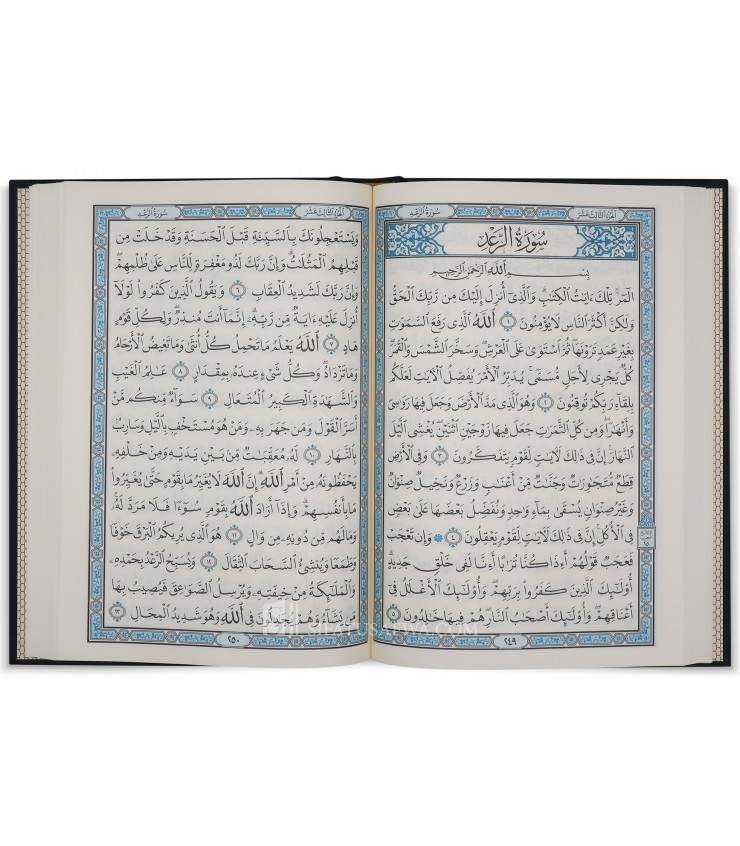 سورة الرعد
الجزء الثالث عشر
سُورَةُ الرَّعْدِ
بِسْمِ اللَّهِ الرَّحْمَٰنِ الرَّحِيمِ
الٓمٓر ۚ تِلْكَ ءَايَٰتُ الْكِتَٰبِ ۗ وَالَّذِىٓ أُنزِلَ إِلَيْكَ مِن رَّبِّكَ الْحَقُّ
وَلَٰكِنَّ أَكْثَرَ النَّاسِ لَا يُؤْمِنُونَ ١ اللَّهُ الَّذِى رَفَعَ السَّمَٰوَٰتِ
بِغَيْرِ عَمَدٍ تَرَوْنَهَا ۖ ثُمَّ اسْتَوَىٰ عَلَى الْعَرْشِ ۖ وَسَخَّرَ الشَّمْسَ وَالْقَمَرَ ۖ
كُلٌّ يَجْرِى لِأَجَلٍ مُّسَمًّى ۚ يُدَبِّرُ الْأَمْرَ يُفَصِّلُ الْءَايَٰتِ لَعَلَّكُم
بِلِقَآءِ رَبِّكُمْ تُوقِنُونَ ٢ وَهُوَ الَّذِى مَدَّ الْأَرْضَ وَجَعَلَ فِيهَا رَوَٰسِىَ
وَأَنْهَٰرًا ۖ وَمِن كُلِّ الثَّمَرَٰتِ جَعَلَ فِيهَا زَوْجَيْنِ اثْنَيْنِ ۖ يُغْشِى الَّيْلَ
النَّهَارَ ۚ إِنَّ فِى ذَٰلِكَ لَءَايَٰتٍ لِّقَوْمٍ يَتَفَكَّرُونَ ٣ وَفِى الْأَرْضِ
قِطَعٌ مُّتَجَٰوِرَٰتٌ وَجَنَّٰتٌ مِّنْ أَعْنَٰبٍ وَزَرْعٌ وَنَخِيلٌ صِنْوَانٌ
وَغَيْرُ صِنْوَانٍ يُسْقَىٰ بِمَآءٍ وَٰحِدٍ وَنُفَضِّلُ بَعْضَهَا عَلَىٰ بَعْضٍ
فِى الْأُكُلِ ۚ إِنَّ فِى ذَٰلِكَ لَءَايَٰتٍ لِّقَوْمٍ يَعْقِلُونَ ٤ ۞ وَإِن تَعْجَبْ
فَعَجَبٌ قَوْلُهُمْ أَءِذَا كُنَّا تُرَٰبًا أَءِنَّا لَفِى خَلْقٍ جَدِيدٍ ۗ
أُو۟لَٰٓئِكَ الَّذِينَ كَفَرُوا۟ بِرَبِّهِمْ ۖ وَأُو۟لَٰٓئِكَ الْأَغْلَٰلُ فِىٓ
أَعْنَاقِهِمْ ۖ وَأُو۟لَٰٓئِكَ أَصْحَٰبُ النَّارِ ۖ هُمْ فِيهَا خَٰلِدُونَ ٥
٢٤٩
سورة الرعد
الجزء الثالث عشر
وَيَسْتَعْجِلُونَكَ بِالسَّيِّئَةِ قَبْلَ الْحَسَنَةِ وَقَدْ خَلَتْ مِن
قَبْلِهِمُ الْمَثُلَٰتُ ۗ وَإِنَّ رَبَّكَ لَذُو مَغْفِرَةٍ لِّلنَّاسِ عَلَىٰ ظُلْمِهِمْ ۖ
وَإِنَّ رَبَّكَ لَشَدِيدُ الْعِقَابِ ٦ وَيَقُولُ الَّذِينَ كَفَرُوا۟ لَوْلَآ
أُنزِلَ عَلَيْهِ ءَايَةٌ مِّن رَّبِّهِۦٓ ۗ إِنَّمَآ أَنتَ مُنذِرٌ ۖ وَلِكُلِّ قَوْمٍ
هَادٍ ٧ اللَّهُ يَعْلَمُ مَا تَحْمِلُ كُلُّ أُنثَىٰ وَمَا تَغِيضُ الْأَرْحَامُ
وَمَا تَزْدَادُ ۖ وَكُلُّ شَىْءٍ عِندَهُۥ بِمِقْدَارٍ ٨ عَٰلِمُ الْغَيْبِ
وَالشَّهَٰدَةِ الْكَبِيرُ الْمُتَعَالِ ٩ سَوَآءٌ مِّنكُم مَّنْ
أَسَرَّ الْقَوْلَ وَمَن جَهَرَ بِهِۦ وَمَنْ هُوَ مُسْتَخْفٍۭ بِالَّيْلِ وَسَارِبٌۢ
بِالنَّهَارِ ١٠ لَهُۥ مُعَقِّبَٰتٌ مِّنۢ بَيْنِ يَدَيْهِ وَمِنْ خَلْفِهِۦ
يَحْفَظُونَهُۥ مِنْ أَمْرِ اللَّهِ ۗ إِنَّ اللَّهَ لَا يُغَيِّرُ مَا بِقَوْمٍ حَتَّىٰ يُغَيِّرُوا۟
مَا بِأَنفُسِهِمْ ۗ وَإِذَآ أَرَادَ اللَّهُ بِقَوْمٍ سُوٓءًا فَلَا مَرَدَّ لَهُۥ ۚ
وَمَا لَهُم مِّن دُونِهِۦ مِن وَالٍ ١١ هُوَ الَّذِى يُرِيكُمُ الْبَرْقَ خَوْفًا
وَطَمَعًا وَيُنشِئُ السَّحَابَ الثِّقَالَ ١٢ وَيُسَبِّحُ الرَّعْدُ بِحَمْدِهِۦ
وَالْمَلَٰٓئِكَةُ مِنْ خِيفَتِهِۦ وَيُرْسِلُ الصَّوَٰعِقَ فَيُصِيبُ بِهَا
مَن يَشَآءُ وَهُمْ يُجَٰدِلُونَ فِى اللَّهِ وَهُوَ شَدِيدُ الْمِحَالِ ١٣
٢٥٠